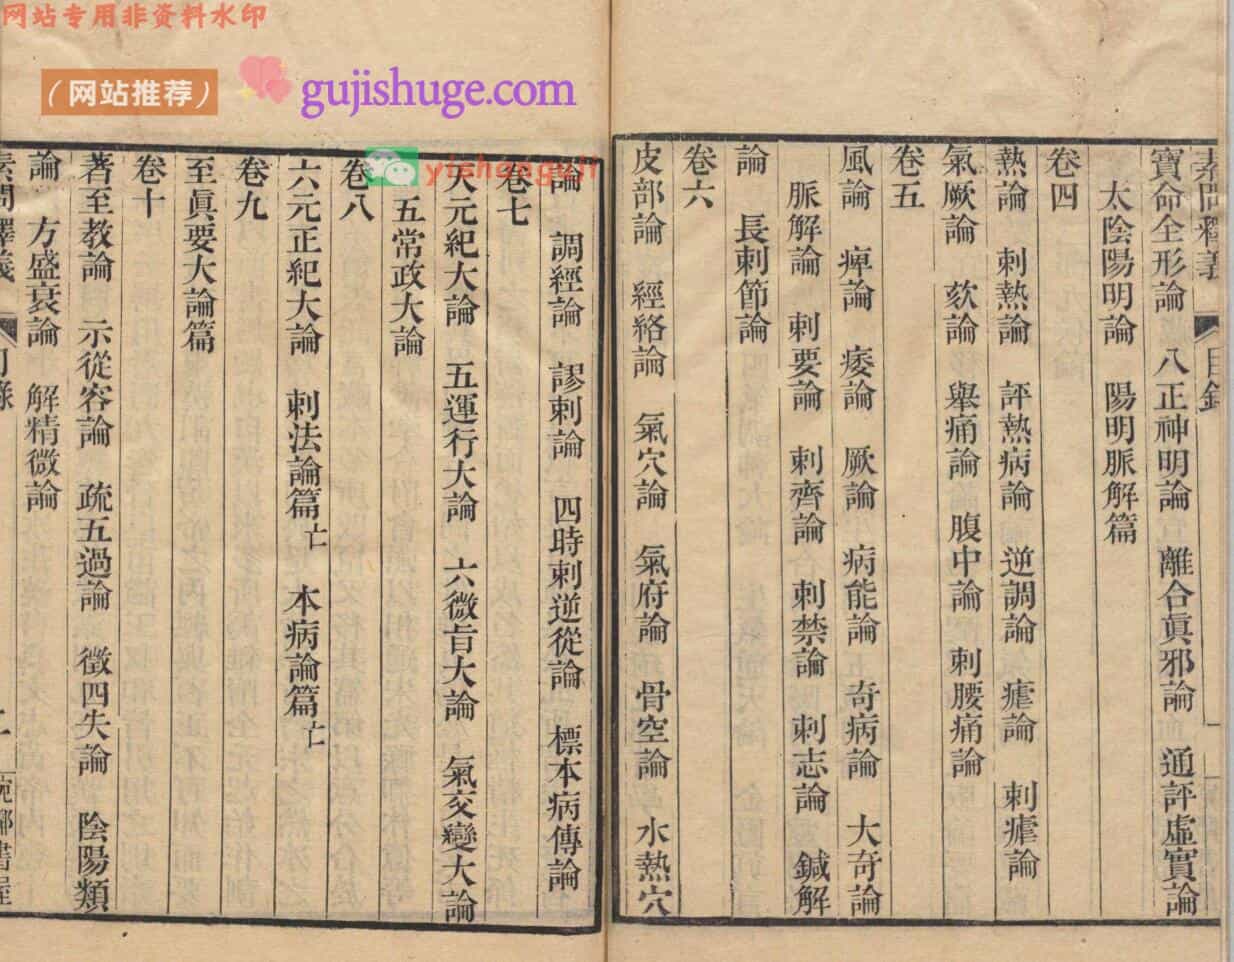 网站专用非资料水印
(网站推荐)
gujishuge.com
yishanguji
素問釋義 目錄
寶命全形論 八正神明論 離合眞邪論 通評虛實論
太陰陽明論 陽明脈解篇
卷四
熱論 刺熱論 評熱病論 逆調論 瘧論 刺瘧論
氣厥論 欬論 舉痛論 腹中論 刺腰痛論
卷五
風論 痺論 痿論 厥論 病能論 奇病論 大奇論
脈解論 刺要論 刺齊論 刺禁論 刺志論 鍼解
論 長刺節論
卷六
皮部論 經絡論 氣穴論 氣府論 骨空論 水熱穴
論 調經論 謬刺論 四時刺逆從論 標本病傳論
卷七
天元紀大論 五運行大論 六微旨大論 氣交變大論
五常政大論
卷八
六元正紀大論 刺法論篇亡 本病論篇亡
卷九
至眞要大論篇
卷十
著至教論 示從容論 疏五過論 徵四失論 陰陽類
論 方盛衰論 解精微論
素問釋義 目錄 二